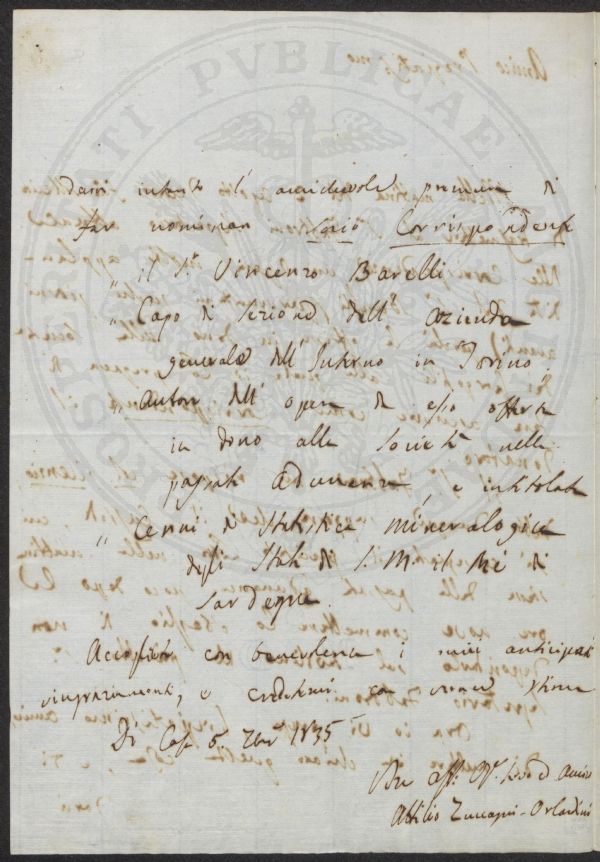 darsi intanto l' amichevole premura di
far nominare in Socio Corrispondente
" il Sr Vincenzo Barelli
" Capo di Sezione dell' Azienda
generale dell' Interno in Torino.
" autore dell' opera da esso offerta
in dono alla Società nella
passata adunanza, e intitolata
" Cenni di Statistica Mineralogica
degli Stati di S. M. il Re di
Sardegna.
Accogliete con benevolenza i miei anticipati
ringraziamenti, e credetemi con vera stima
Di Casa 6. 1835
Vro aff. Amico
Attilio Zuccagni-Orlandini